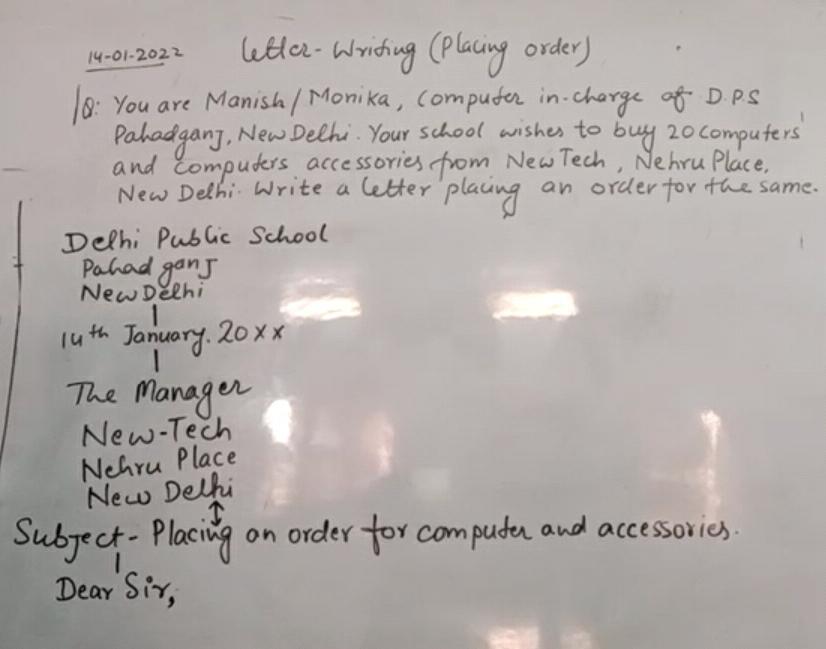 14-01-2022 Letter-Writing (Placing order)
Q: You are Manish/Monika, Computer in-charge of D.P.S
Pahadganj, New Delhi. Your school wishes to buy 20 computers
and computers accessories from New Tech, Nehru Place,
New Delhi. Write a letter placing an order for the same.
Delhi Public School
Pahad ganj
New Delhi
14th January. 20xx
The Manager
New-Tech
Nehru Place
New Delhi
Subject- Placing an order for computer and accessories.
Dear Sir,